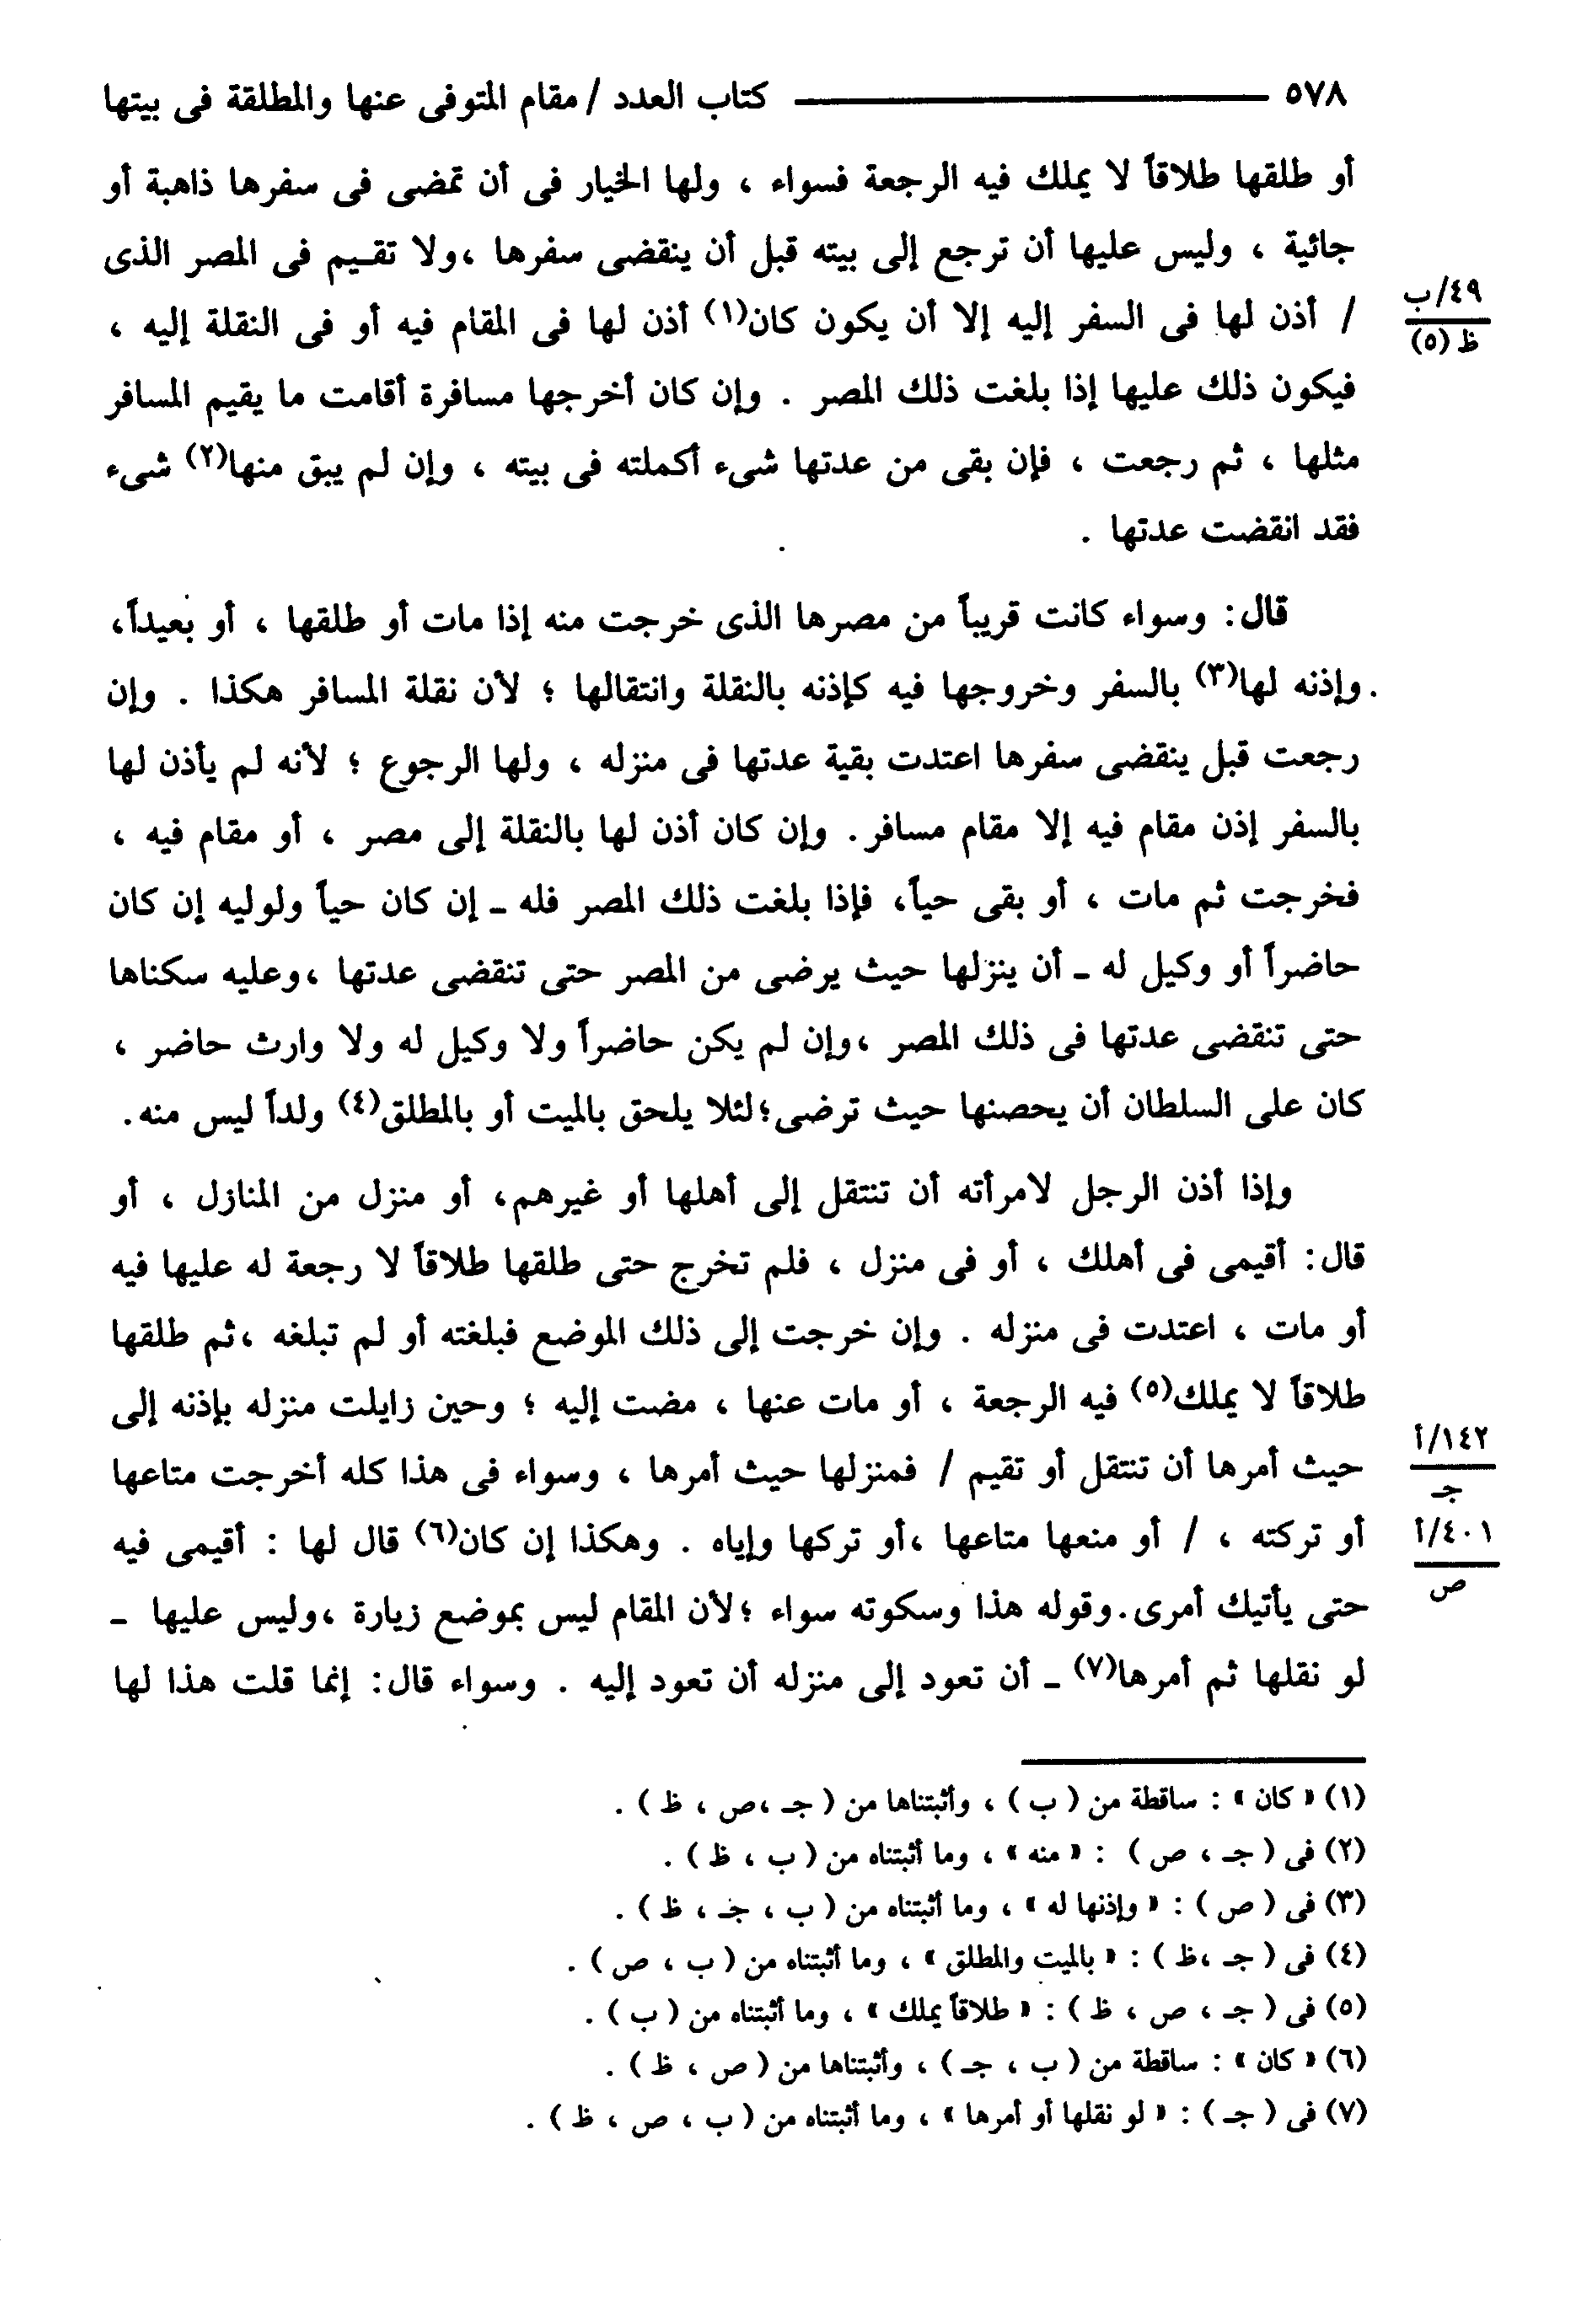 ٥٧٨ ـــــــــــــ كتاب العدد / مقام المتوفى عنها والمطلقة فى بيتها
أو طلقها طلاقاً لا يملك فيه الرجعة فسواء ، ولها الخيار فى أن تمضى فى سفرها ذاهبة أو
جائية ، وليس عليها أن ترجع إلى بيته قبل أن ينقضى سفرها ،ولا تقـيم فى المصر الذى
٤٩/ب
ظ (٥)
/ أذن لها فى السفر إليه إلا أن يكون كان(١) أذن لها فى المقام فيه أو فى النقلة إليه ،
فيكون ذلك عليها إذا بلغت ذلك المصر . وإن كان أخرجها مسافرة أقامت ما يقيم المسافر
مثلها ، ثم رجعت ، فإن بقى من عدتها شىء أكملته فى بيته ، وإن لم يبق منها(٢) شىء
فقد انقضت عدتها .
قال: وسواء كانت قريباً من مصرها الذى خرجت منه إذا مات أو طلقها ، أو بعيداً،
وإذنه لها(٣) بالسفر وخروجها فيه كإذنه بالنقلة وانتقالها ؛ لأن نقلة المسافر هكذا . وإن
رجعت قبل ينقضى سفرها اعتدت بقية عدتها فى منزله ، ولها الرجوع ؛ لأنه لم يأذن لها
بالسفر إذن مقام فيه إلا مقام مسافر. وإن كان أذن لها بالنقلة إلى مصر ، أو مقام فيه ،
فخرجت ثم مات ، أو بقى حياً، فإذا بلغت ذلك المصر فله ـ إن كان حياً ولوليه إن كان
حاضراً أو وكيل له ـ أن ينزلها حيث يرضى من المصر حتى تنقضى عدتها ،وعليه سكناها
حتى تنقضى عدتها فى ذلك المصر ،وإن لم يكن حاضراً ولا وكيل له ولا وارث حاضر ،
كان على السلطان أن يحصنها حيث ترضى؛لئلا يلحق بالميت أو بالمطلق(٤) ولداً ليس منه.
وإذا أذن الرجل لامرأته أن تنتقل إلى أهلها أو غيرهم، أو منزل من المنازل ، أو
قال: أقيمى فى أهلك ، أو فى منزل ، فلم تخرج حتى طلقها طلاقاً لا رجعة له عليها فيه
أو مات ، اعتدت فى منزله . وإن خرجت إلى ذلك الموضع فبلغته أو لم تبلغه ،ثم طلقها
طلاقاً لا يملك(٥) فيه الرجعة ، أو مات عنها ، مضت إليه ؛ وحين زايلت منزله بإذنه إلى
١٤٢/أ
جـ
حيث أمرها أن تنتقل أو تقيم / فمنزلها حيث أمرها ، وسواء فى هذا كله أخرجت متاعها
٤٠١/أ
ص
أو تركته ، / أو منعها متاعها ،أو تركها وإياه . وهكذا إن كان(٦) قال لها : أقيمى فيه
حتى يأتيك أمرى.وقوله هذا وسكوته سواء ؛لأن المقام ليس بموضع زيارة ،وليس عليها ـ
لو نقلها ثم أمرها(٧) ـ أن تعود إلى منزله أن تعود إليه . وسواء قال: إنما قلت هذا لها
(١) « كان » : ساقطة من ( ب ) ، وأثبتناها من ( جـ ،ص ، ظ ) .
(٢) فى ( جـ ، ص ) : « منه » ، وما أثبتناه من ( ب ، ظ ) .
(٣) فى ( ص ) : « وإذنها له » ، وما أثبتناه من ( ب ، جـ ، ظ ) .
(٤) فى ( جـ ،ظ ) : « بالميت والمطلق » ، وما أثبتناه من ( ب ، ص ) .
(٥) فى ( جـ ، ص ، ظ ) : « طلاقاً يملك » ، وما أثبتناه من ( ب ) .
(٦) « كان » : ساقطة من ( ب ، جـ ) ، وأثبتناها من ( ص ، ظ ) .
(٧) فى ( جـ ) : « لو نقلها أو أمرها » ، وما أثبتناه من ( ب ، ص ، ظ ) .